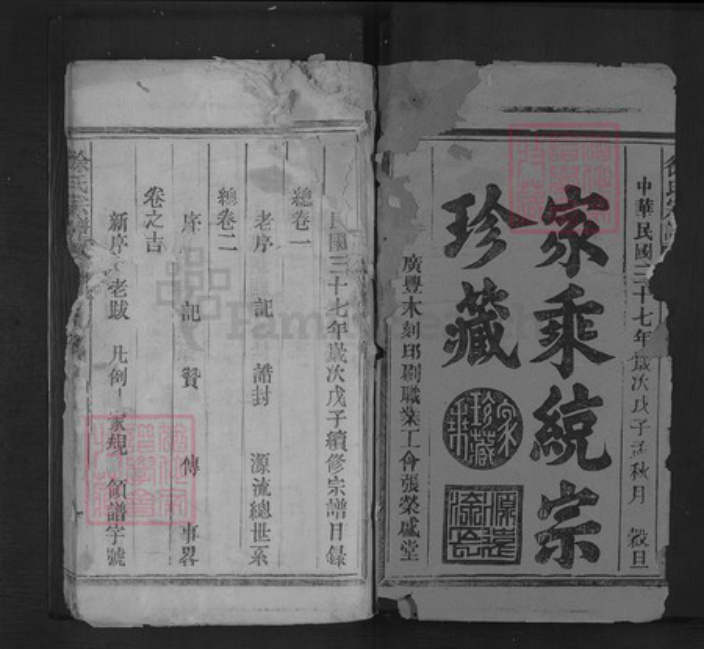 中華民國三十七年歲次戊子孟秋月 穀旦
家乘統宗
珍藏
廣豐木刻印刷職業工會張榮盛堂
民國三十七年歲次戊子續修宗譜目錄
總卷一
老序 記 誥封 源流總世系
總卷二
序 記 贊 傳 事畧
卷之吉
新序 老跋 凡例 家規 領譜字號
徐氏宗譜